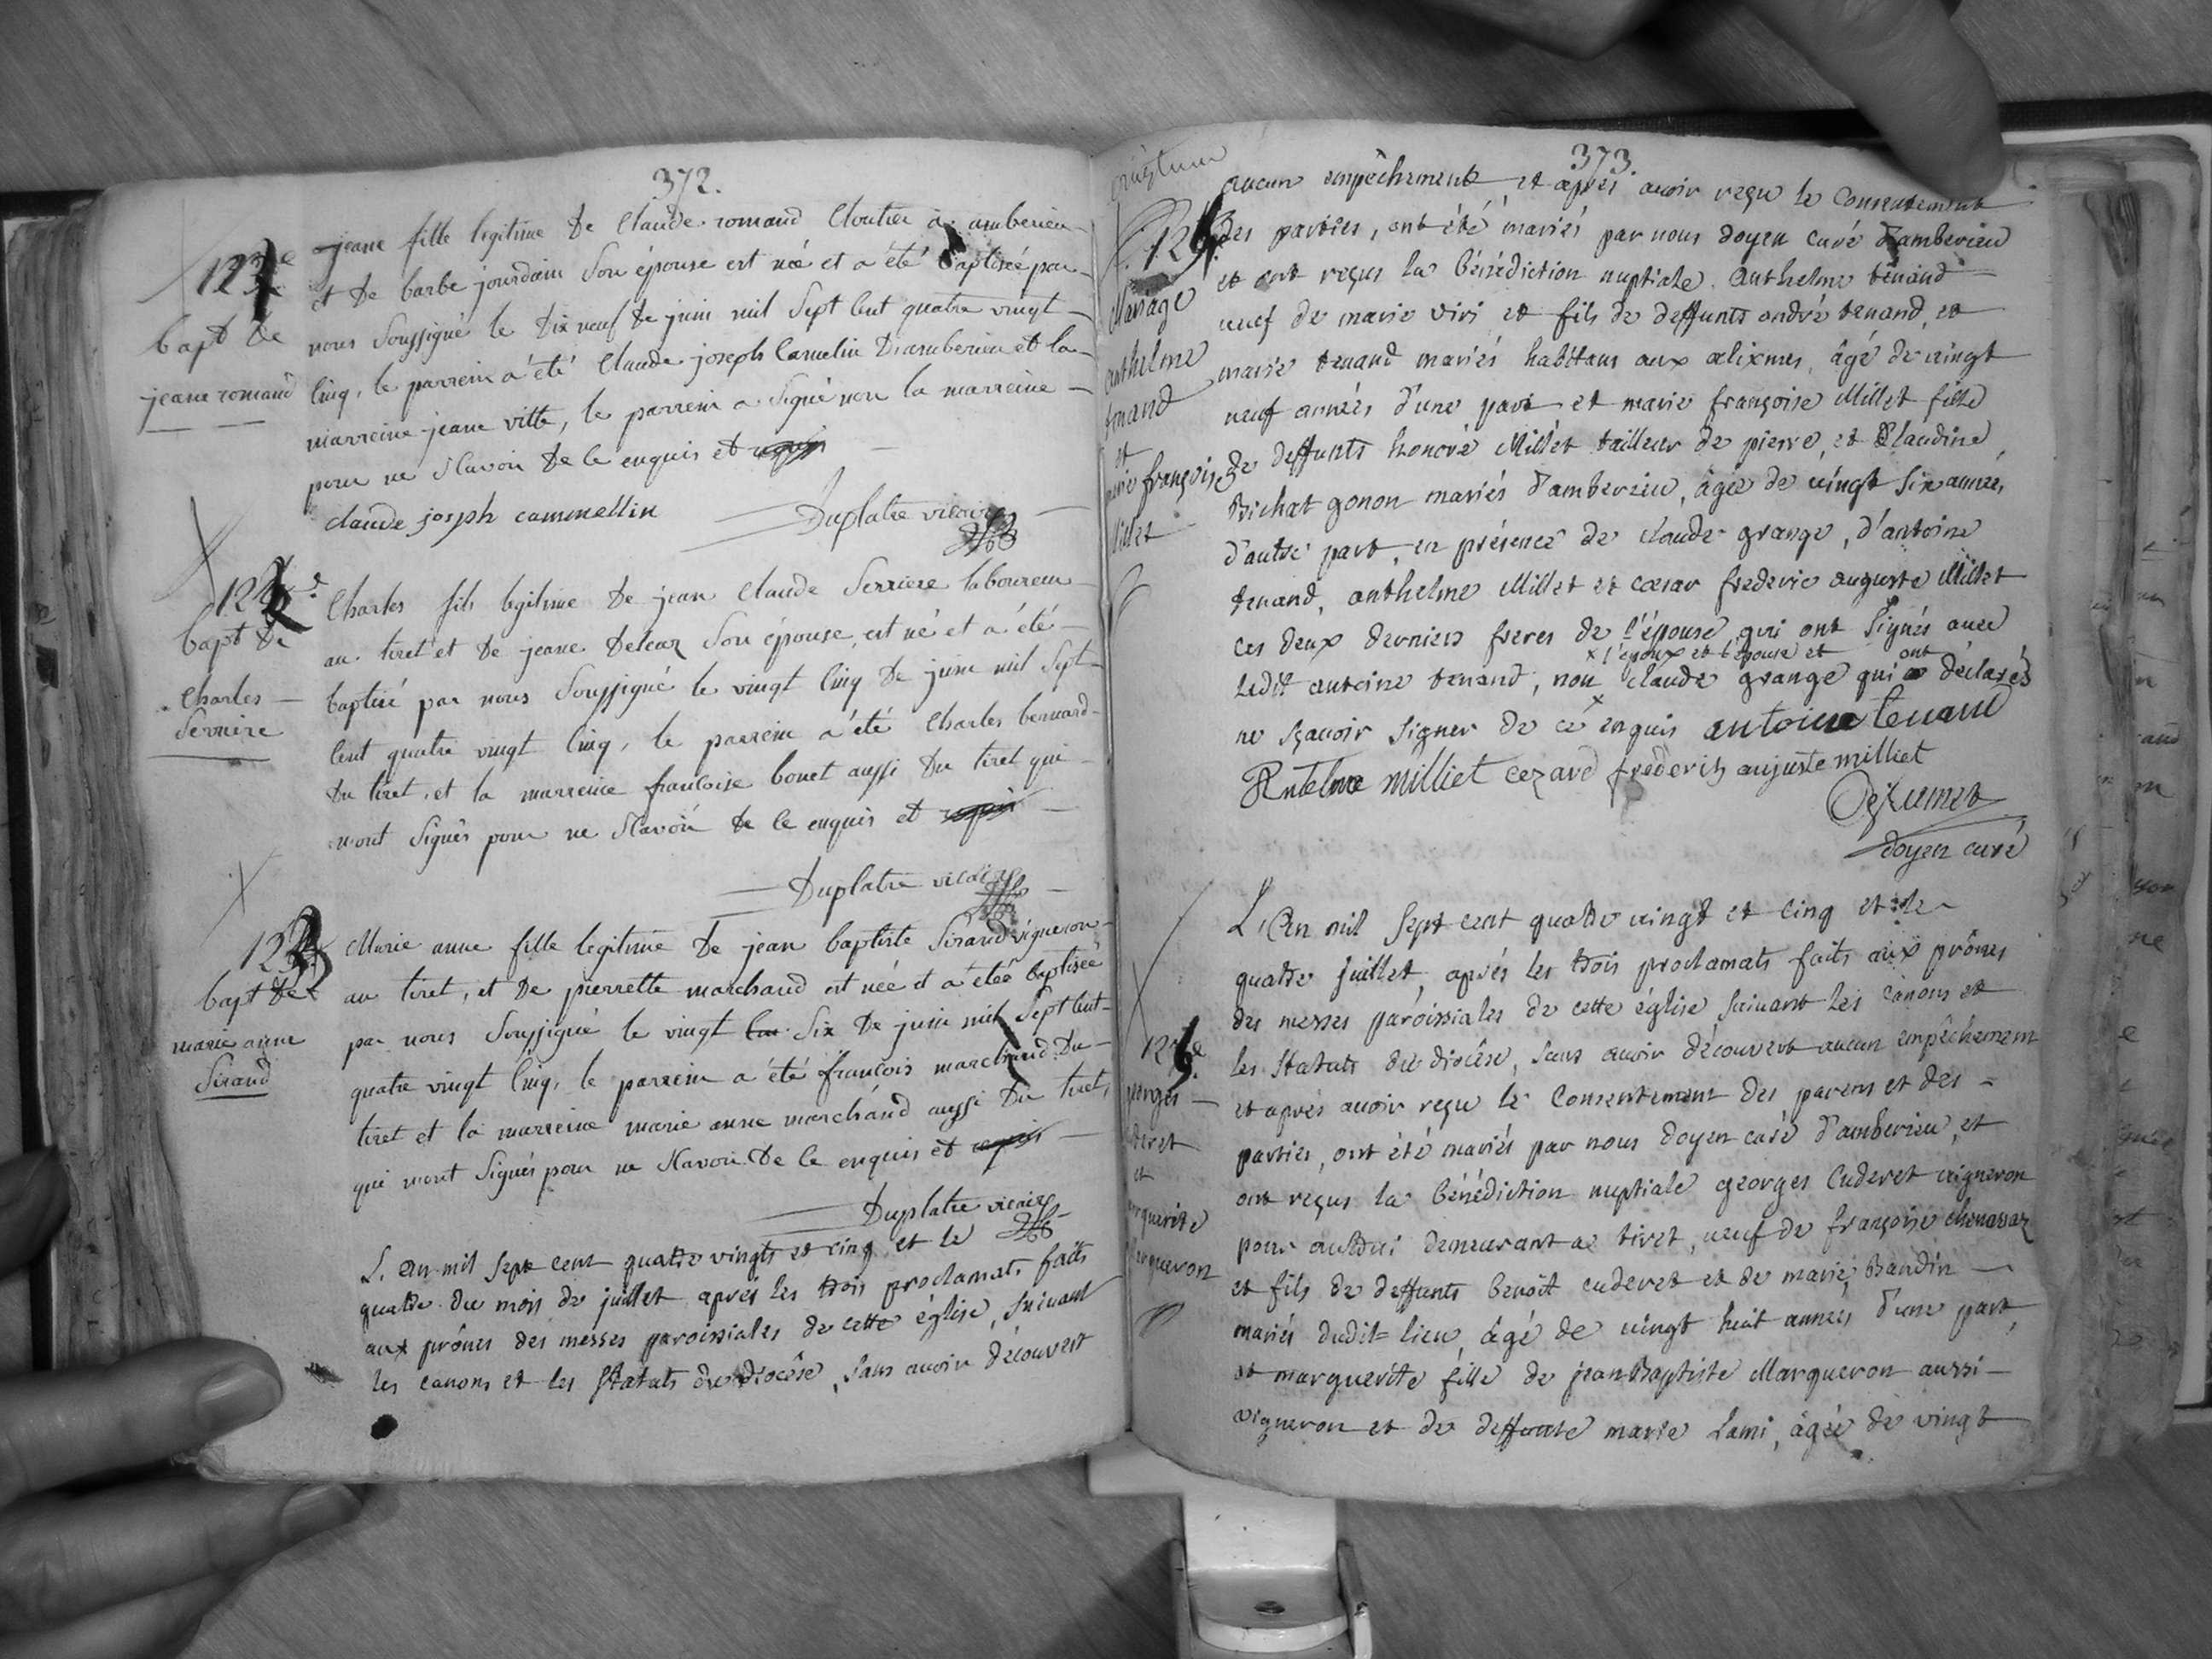 372.
bapt de
jeane romand
jeane fille legitime de Claude romand Cloutier à amberieu
et de barbe jourdain son épouse est née et a été baptisée par
nous soussigné le dix neuf de juin mil sept cent quatre vingt
cinq, le parrein a été Claude joseph Camelin d'amberieu et la
marreine jeane ville, le parrein a signé non la marreine
pour ne scavoir de ce enquis et
claude josph cammellin
Duplatre vicaire
bapt de
Charles
Serriere
Charles fils legitime de jean Claude Serriere laboureur
au tiret et de jeane Deleaz son épouse, est né et a été
baptisé par nous soussigné le vingt cinq de juin mil sept
cent quatre vingt cinq, le parrein a été Charles bernard
du tiret, et la marreine francoise bouet aussi du tiret qui
n'ont signés pour ne scavoir de ce enquis et
Duplatre vicaire
bapt de
marie anne
Sirand
Marie anne fille legitime de jean baptiste Sirand vigneron
au tiret, et de pierrette marchand est née et a étée baptisée
par nous soussigné le vingt six de juin mil sept cent
quatre vingt cinq, le parrein a été françois marchand du
tiret et la marreine marie anne marchand aussi du tiret,
qui n'ont signés pour ne scavoir de ce enquis et
Duplatre vicaire
L'an mil sept cent quatre vingts et cinq et le
quatre du mois de juillet après les trois proclamats faits
aux prônes des messes paroissiales de cette église, suivant
les canons et les statuts du diocêse, sans avoir découvert
373
Mariage
anthelme
tenand
et
marie françoise
Millet
aucun empêchement et après avoir reçu le consentement
des parties, ont été mariés par nous doyen curé d'amberieu
et ont reçus la bénédiction nuptiale. Anthelme tenand
veuf de marie viri et fils de deffunts andré tenand, et
marie tenand mariés habitans aux alixmes, âgé de vingt
neuf années d'une part et marie françoise Millet fille
de deffunts honoré Millet tailleur de pierre, et Claudine
Bichat gonon mariés d'amberieu, âgée de vingt six années,
d'autre part, en présence de claude grange, d'antoine
tenand, anthelme Millet et cœsar frederic auguste Millet
ces deux derniers freres de l'épouse, qui ont signés avec
x l'epoux et l'epouse et ont
ledit antoine tenand, non claude grange qui déclarés
ne sçavoir signer de ce enquis antoine tenand
Antelme milliet cezard frederich aujuste milliet
doyen curé
georges
Cuderet
et
marguerite
Marqueron
L'an mil sept cent quatre vingt et cinq et le
quatre juillet, après les trois proclamats faits aux prônes
des messes paroissiales de cette église suivant les canons et
les statuts du diocêse, sans avoir découvert aucun empêchement
et après avoir reçu le consentement des parens et des
parties, ont été mariés par nous doyen curé d'amberieu, et
ont reçus la bénédiction nuptiale georges Cuderet vigneron
pour autrui demeurant au tiret, veuf de françoise chenavaz
et fils de deffunts benoit cuderet et de marie Bandin
mariés dudit=lieu, âgé de vingt huit années d'une part,
et marguerite fille de jean Baptiste Marqueron aussi
vigneron et de deffunte marie Lami, âgée de vingt